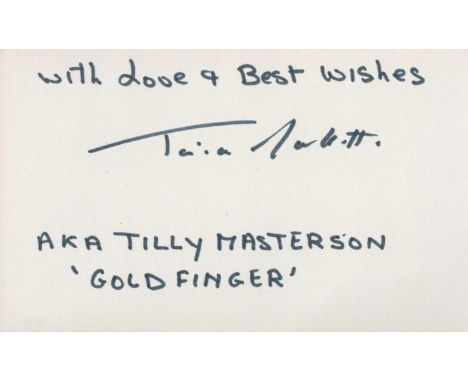 with Love & Best Wishes
Tania Mallett.
AKA TILLY MASTERSON
'GOLDFINGER'